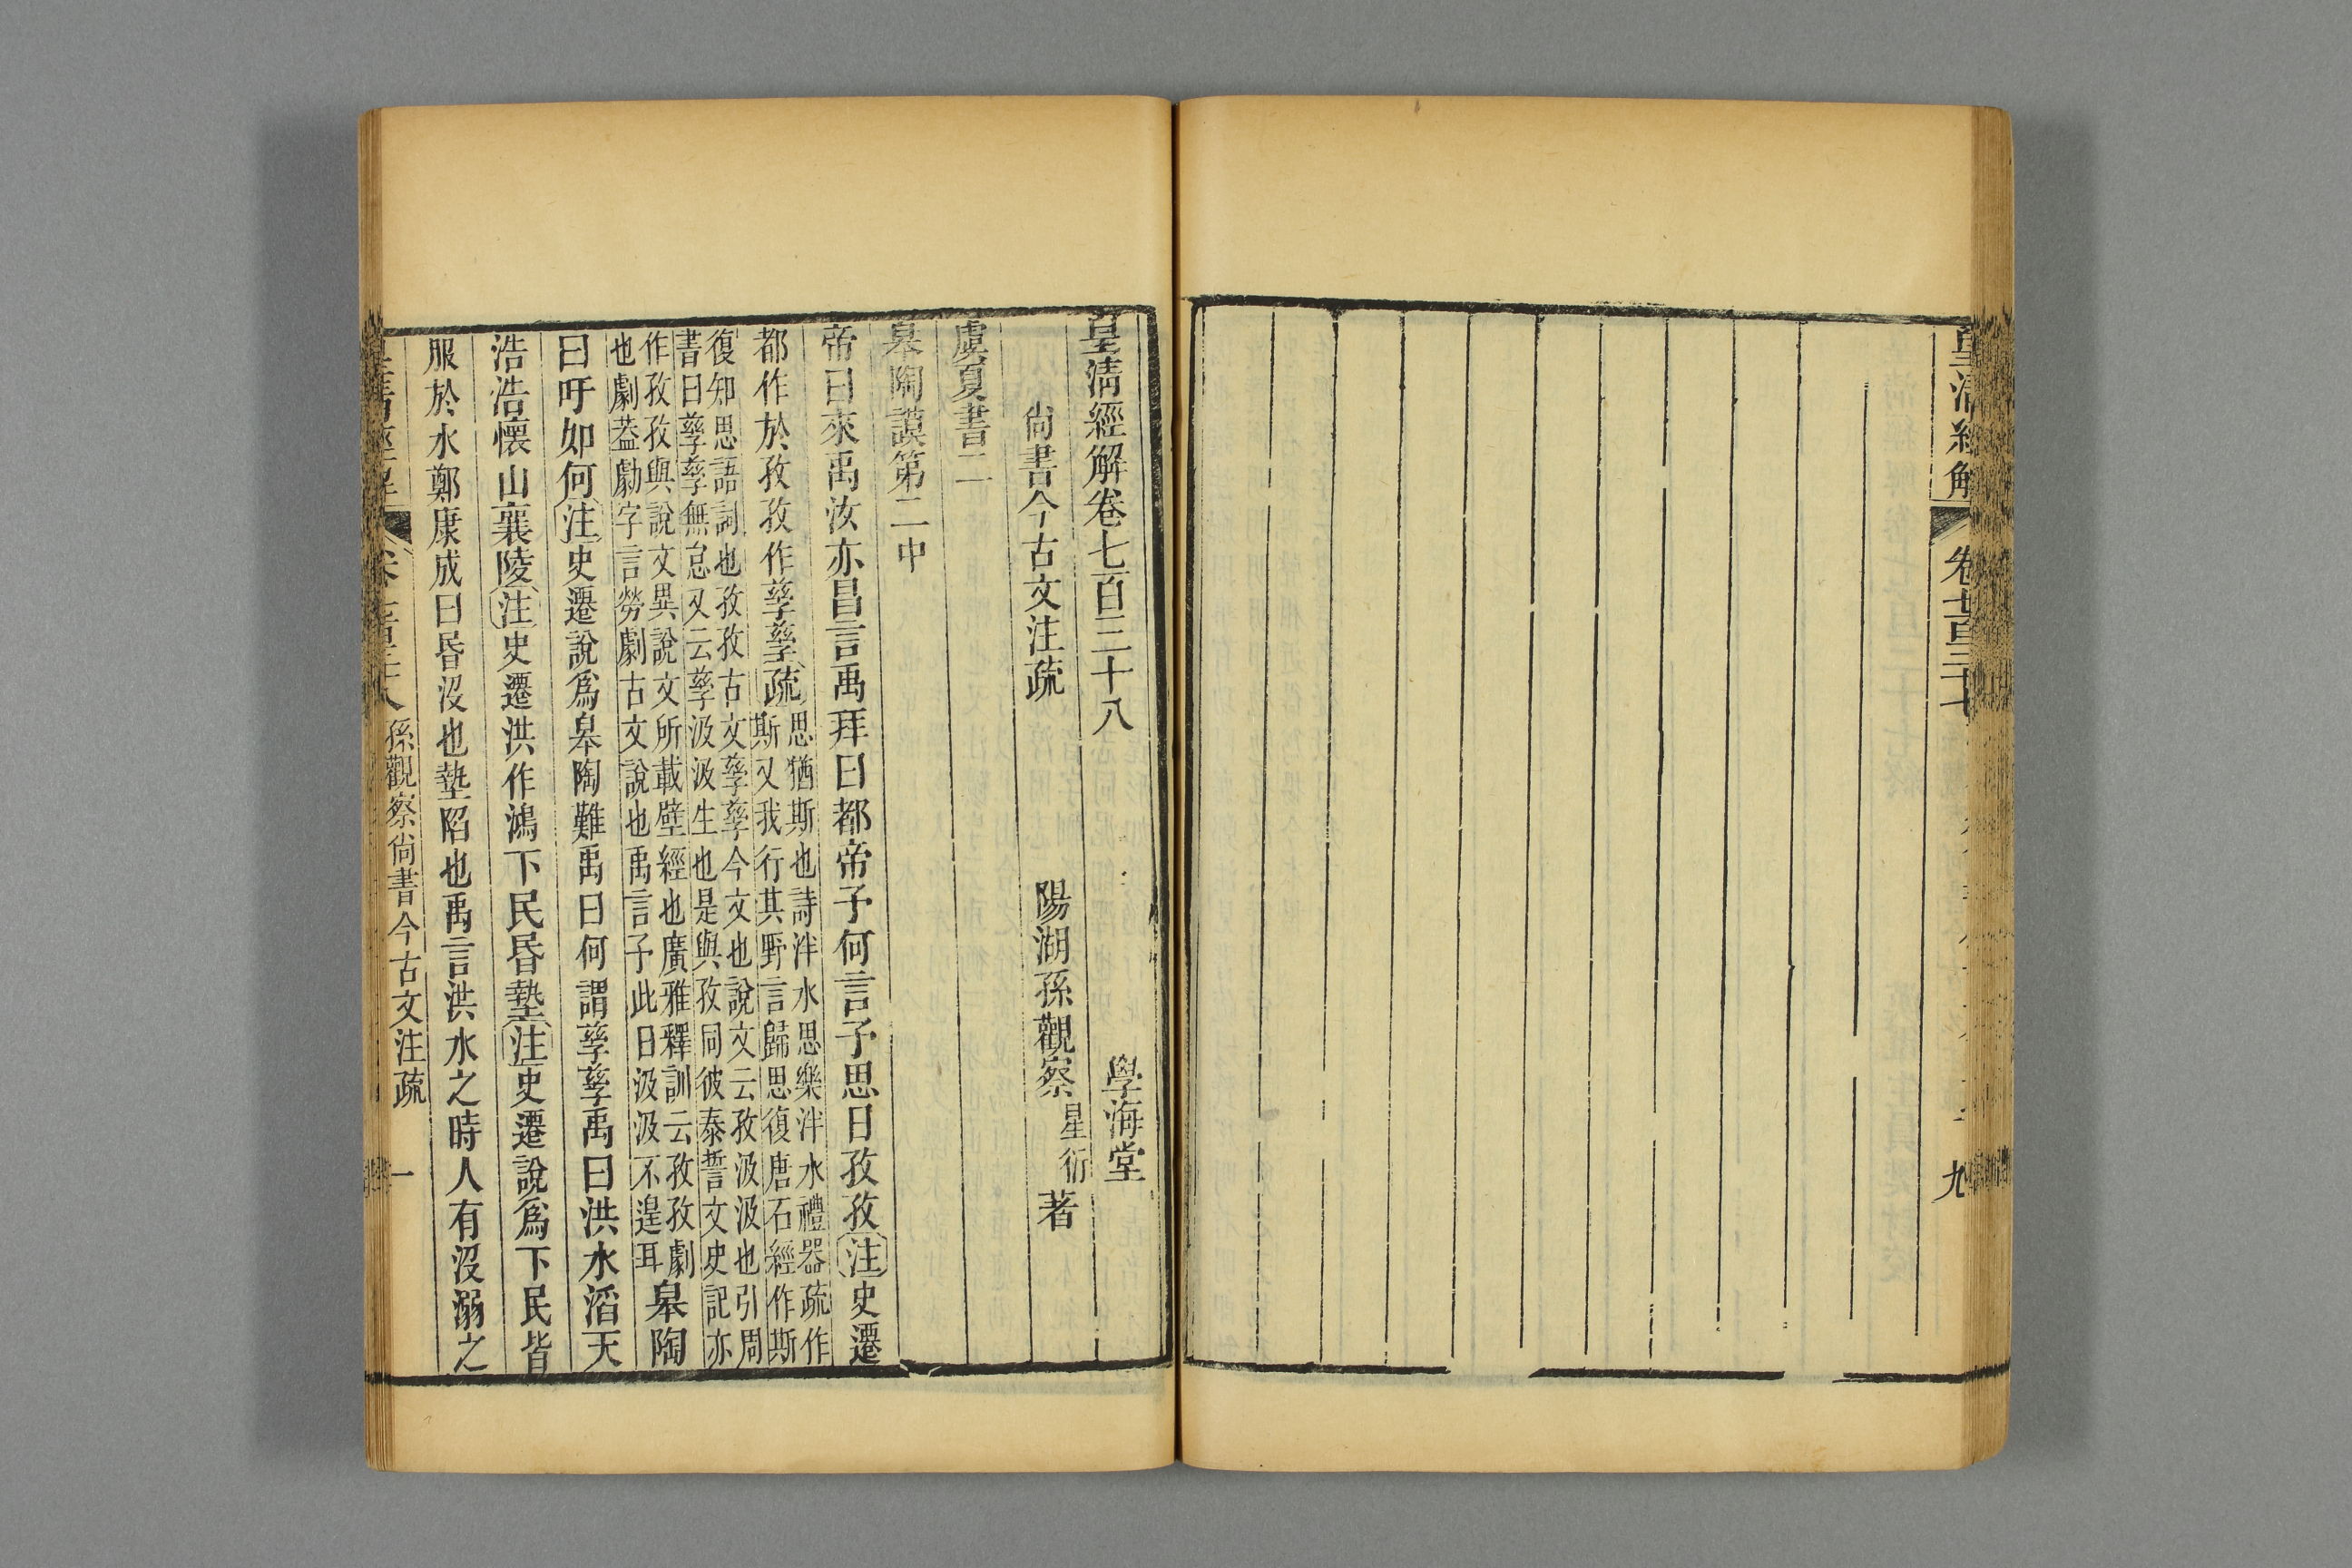 皇清經解
卷七百三十七
九
皇清經解卷七百三十八
學海堂
尙書今古文注疏
陽湖孫觀察星衍著
虞夏書二
皋陶謨第二中
帝曰來禹汝亦昌言禹拜曰都帝予何言予思日孜孜注史遷
都作於孜孜作孳孳疏思猶斯也詩泮水思樂泮水禮器疏作
斯又我行其野言歸思復唐石經作斯
復知思語詞也孜孜古文孳孳今文也說文云孜汲汲也引周
書曰孳孳無怠又云孳汲汲生也是與孜同彼泰誓文史記亦
作孜孜與說文異說文所載壁經也廣雅釋訓云孜孜劇
也劇葢勮字言勞劇古文說也禹言予此日汲汲不遑耳皋陶
曰吁如何注史遷說爲皋陶難禹曰何謂孳孳禹曰洪水滔天
浩浩懷山襄陵注史遷洪作鴻下民昏墊注史遷說爲下民皆
服於水鄭康成曰昏沒也墊陷也禹言洪水之時人有沒溺之
孫觀察尙書今古文注疏
一